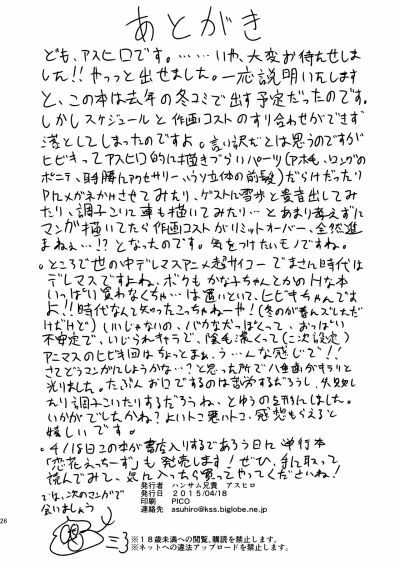 あとがき
ども、アスヒロです。……いや、大変お待たせしま
した!!やっっと出せました。一応説明いたします
と、この本は去年の冬コミで出す予定だったのです。
しかしスケジュールと作画コストのすり合わせができず
落としてしまったのですよ。言い訳だとは思うのですが
ヒビキってアスヒロ的に描きづらいパーツ(アホ毛、ロングの
ポニテ、時勝にアクセサリー、ハウソ立体の前髪)だらけだったり
Pにメガネかけさせてみたり、ゲストに雪歩と貴音出してみ
たり、調子こいて車も描いてみたり…とあまり考えずに
マンガ描いてたら作画コストがリミットオーバー、全然進
まねぇ…!?となったのです。気をつけたいモノですね。
。ところで世の中デレマスアニメ超サイコーでまさに時代は
デレマスですよね、ボクもかな子ちゃんとかのHな本
いっぱい買わなくちゃ…は置いといて、ヒビキちゃんです
よ!!時代なんて知ったこっちゃねーや!(冬のが春にズレただ
けだけど)いいじゃないの、バカなだっぽくって、おっぱい
不安定で、いじられキャラで、陰毛濃くって(二次設定)
アニマスのヒビキ回はちょっとまぁ、う…んな感じで!!
さてどうマンガにしようかな…?と思った所で八重歯がキラリと
光りました。たぶんお口でするのは苦労するだろうし、失敗し
たり調子こいたりするだろうね、とゆうの形にしました。
いかがでしたかね?よいトコ悪いトコ、感想もらえると
嬉しいです。
。4/18日この本が書店入りするであろう日に単行本
「恋花えっちーず」も発売します!ぜひ、手に取って
読んでみて、気に入ったら買ってやってくださいね!
では、次のマンガで
会いましょう
発行者 ハンサム兄貴 アスヒロ
発行日 2015/04/18
印刷 PICO
連絡先 asuhiro@kss.biglobe.ne.jp
※18歳未満への閲覧、購読を禁止します。
※ネットへの違法アップロードを禁止します。
26